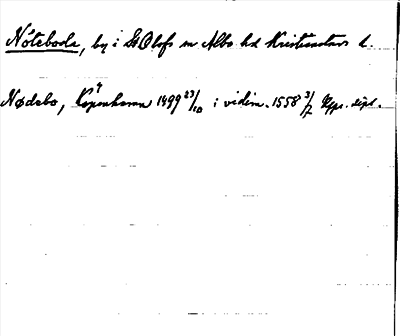 Nöteboda, by i S:t Olofs sn Albo hd Kristianstads l.
Nødebo, Kopenhamn 1499 23/10 i vidim. 1558 3/7 Upps. dipl.